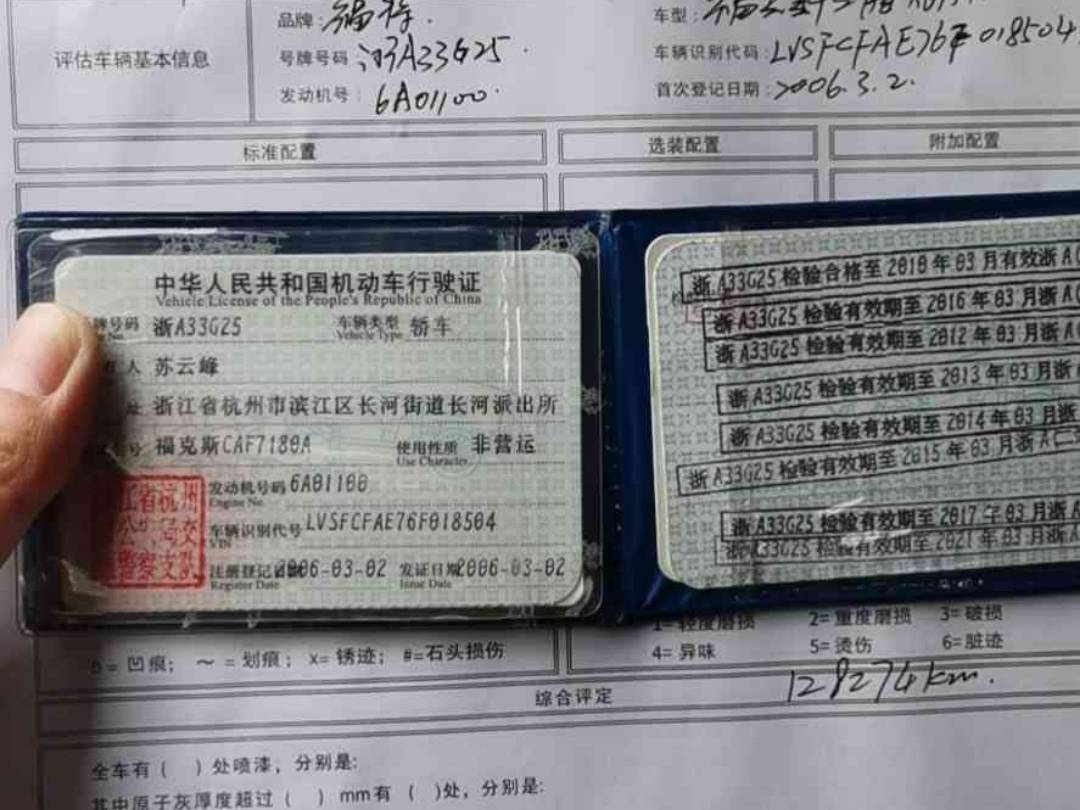 品牌：福特.
车型：福克斯
评估车辆基本信息
号牌号码：浙A33G25.
车辆识别代码：LVSFCFAE76F018504
发动机号：6A01100.
首次登记日期：2006.3.2.
标准配置
选装配置
附加配置
中华人民共和国机动车行驶证
Vehicle License of the People's Republic of China
牌号码 浙A33G25
车辆类型 轿车
Vehicle Type
人 苏云峰
址 浙江省杭州市滨江区长河街道长河派出所
号 福克斯CAF7180A
使用性质 非营运
Use Character
江省杭州
公安局交
警察支队
发动机号码 6A01100
Engine No.
车辆识别代号 LVSFCFAE76F018504
VIN
注册登记日期 2006-03-02
Register Date
发证日期 2006-03-02
Issue Date
浙A33G25 检验合格至 2010 年 03 月有效浙A(
浙A33G25 检验有效期至 2016 年 03 月浙A(
浙A33G25 检验有效期至 2012 年 03 月浙A(
浙A33G25 检验有效期至 2013 年 03 月浙
浙A33G25 检验有效期至 2014 年 03 月浙
浙A33G25 检验有效期至 2015 年 03 月浙A(
浙A33G25 检验有效期至 2017 年 03 月浙A
浙A33G25 检验有效期至 2021 年 03 月浙A
1=轻度磨损 2=重度磨损 3=破损
4=异味 5=烫伤 6=脏迹
凹痕； ～=划痕； x=锈迹； #=石头损伤
128274km.
综合评定
全车有（ ）处喷漆，分别是:
其中原子灰厚度超过（ ）mm有（ ）处，分别是: